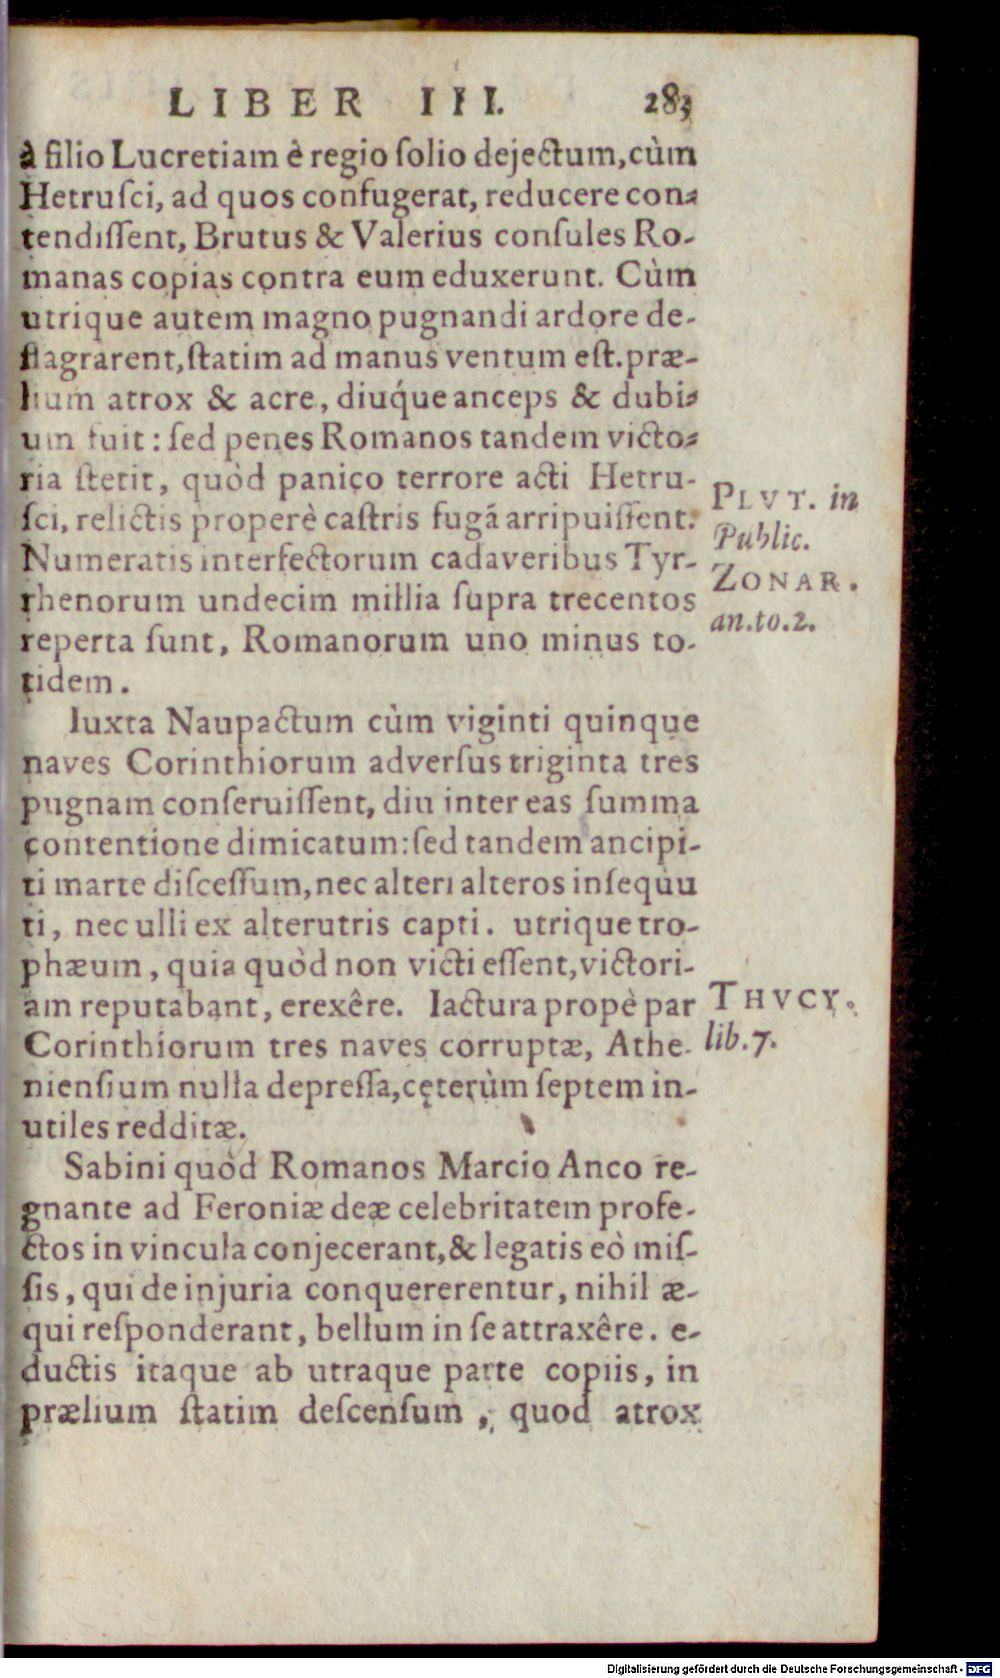 LIBER III. 283
à filio Lucretiam è regio ſolio dejectum, cùm
Hetruſci, ad quos confugerat, reducere con-
tendiſſent, Brutus & Valerius conſules Ro-
manas copias contra eum eduxerunt. Cùm
utrique autem magno pugnandi ardore de-
flagrarent, ſtatim ad manus ventum eſt. præ-
lium atrox & acre, diuq́ue anceps & dubi-
um fuit: ſed penes Romanos tandem victo-
ria ſtetit, quòd panico terrore acti Hetru-
ſci, relictis properè caſtris fugã arripuiſſent.
Numeratis interfectorum cadaveribus Tyr-
rhenorum undecim millia ſupra trecentos
reperta ſunt, Romanorum uno minus to-
tidem.
PLVT. in
Public.
ZONAR.
an.to.2.
Iuxta Naupactum cùm viginti quinque
naves Corinthiorum adverſus triginta tres
pugnam conſeruiſſent, diu inter eas ſumma
contentione dimicatum: ſed tandem ancipi-
ti marte diſceſſum, nec alteri alteros inſequùu
ti, nec ulli ex alterutris capti. utrique tro-
phæum, quia quòd non victi eſſent, victori-
am reputabant, erexêre. Iactura propè par
Corinthiorum tres naves corruptæ, Athe-
nienſium nulla depreſſa, cęterùm ſeptem in-
utiles redditæ.
THVCY.
lib.7.
Sabini quòd Romanos Marcio Anco re-
gnante ad Feroniæ deæ celebritatem profe-
ctos in vincula conjecerant, & legatis eò miſ-
ſis, qui de injuria conquererentur, nihil æ-
qui reſponderant, bellum in ſe attraxêre. e-
ductis itaque ab utraque parte copiis, in
prælium ſtatim deſcenſum, quod atrox
Digitalisierung gefördert durch die Deutsche Forschungsgemeinschaft - DFG